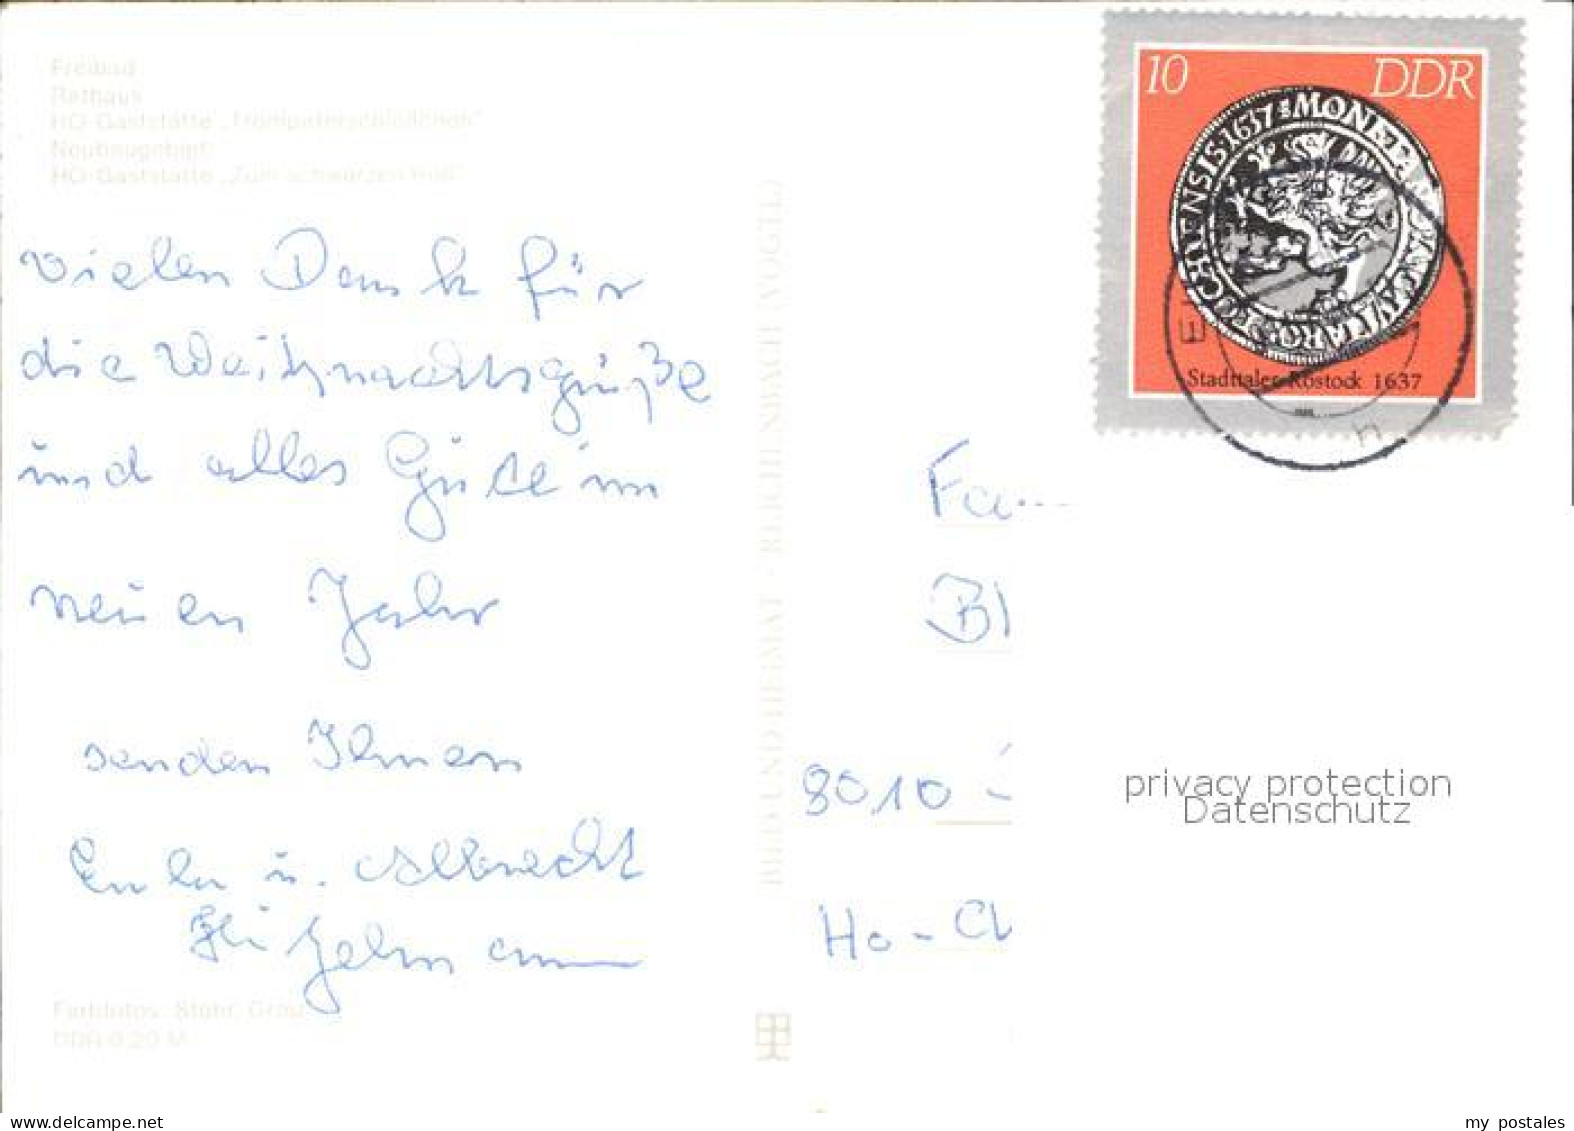 Freibad
Rathaus
HO-Gaststätte „Trompeterschlößchen“
Neubaugebiet
HO-Gaststätte „Zum schwarzen Roß“
Vielen Dank für
die Weihnachtsgrüße
und alles Gute im
neuen Jahr
senden Ihnen
u. Albrecht
Farbfotos: Stöhr,
DDR 0,20 M
BILD UND HEIMAT · REICHENBACH (VOGTL)
10 DDR
1637 MON
Stadttaler Rostock 1637
Fa
Bl
8010
Ho - Ch
privacy protection
Datenschutz
www.delcampe.net
my postales